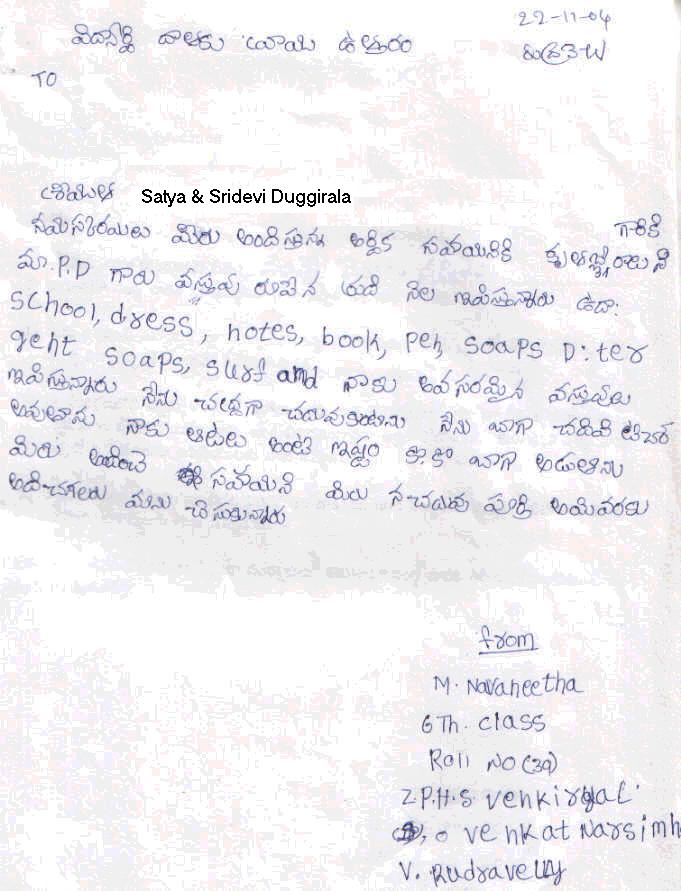 22-11-04
విద్యార్థి దాతకు వ్రాయు ఉత్తరం
రుద్రవెల్లి
TO
శ్రీయుత Satya & Sridevi Duggirala గారికి
నమస్కారములు మీరు అందిస్తున్న ఆర్థిక సహాయనికి కృతజ్ఞురాలుని
మా.P.D గారు వస్తువు రూపేన ప్రతి నెల ఇపిస్తున్నారు ఉదా:
School, dress, notes, book, pen, soaps D:ter
gent soaps, surf and నాకు అవసరమైన వస్తువులు
ఇపిస్తున్నారు నేను చక్కగా చదువుకుంటాను నేను బాగా చదివి టీచర్
అవుతాను నాకు ఆటలు అంటే ఇష్టం కొ.కొ బాగా ఆడుతాను
మీరు అందించే ఈ సహాయని మీరు నచదువు పూర్తి అయివరకు
అదించగలరు మనవి చేసుకున్నారు
from
M. Navaneetha
6Th. class
Roll NO (39)
Z.P.H.S Venkiryal.
o Venkat Narsimh
V. Rudravelly